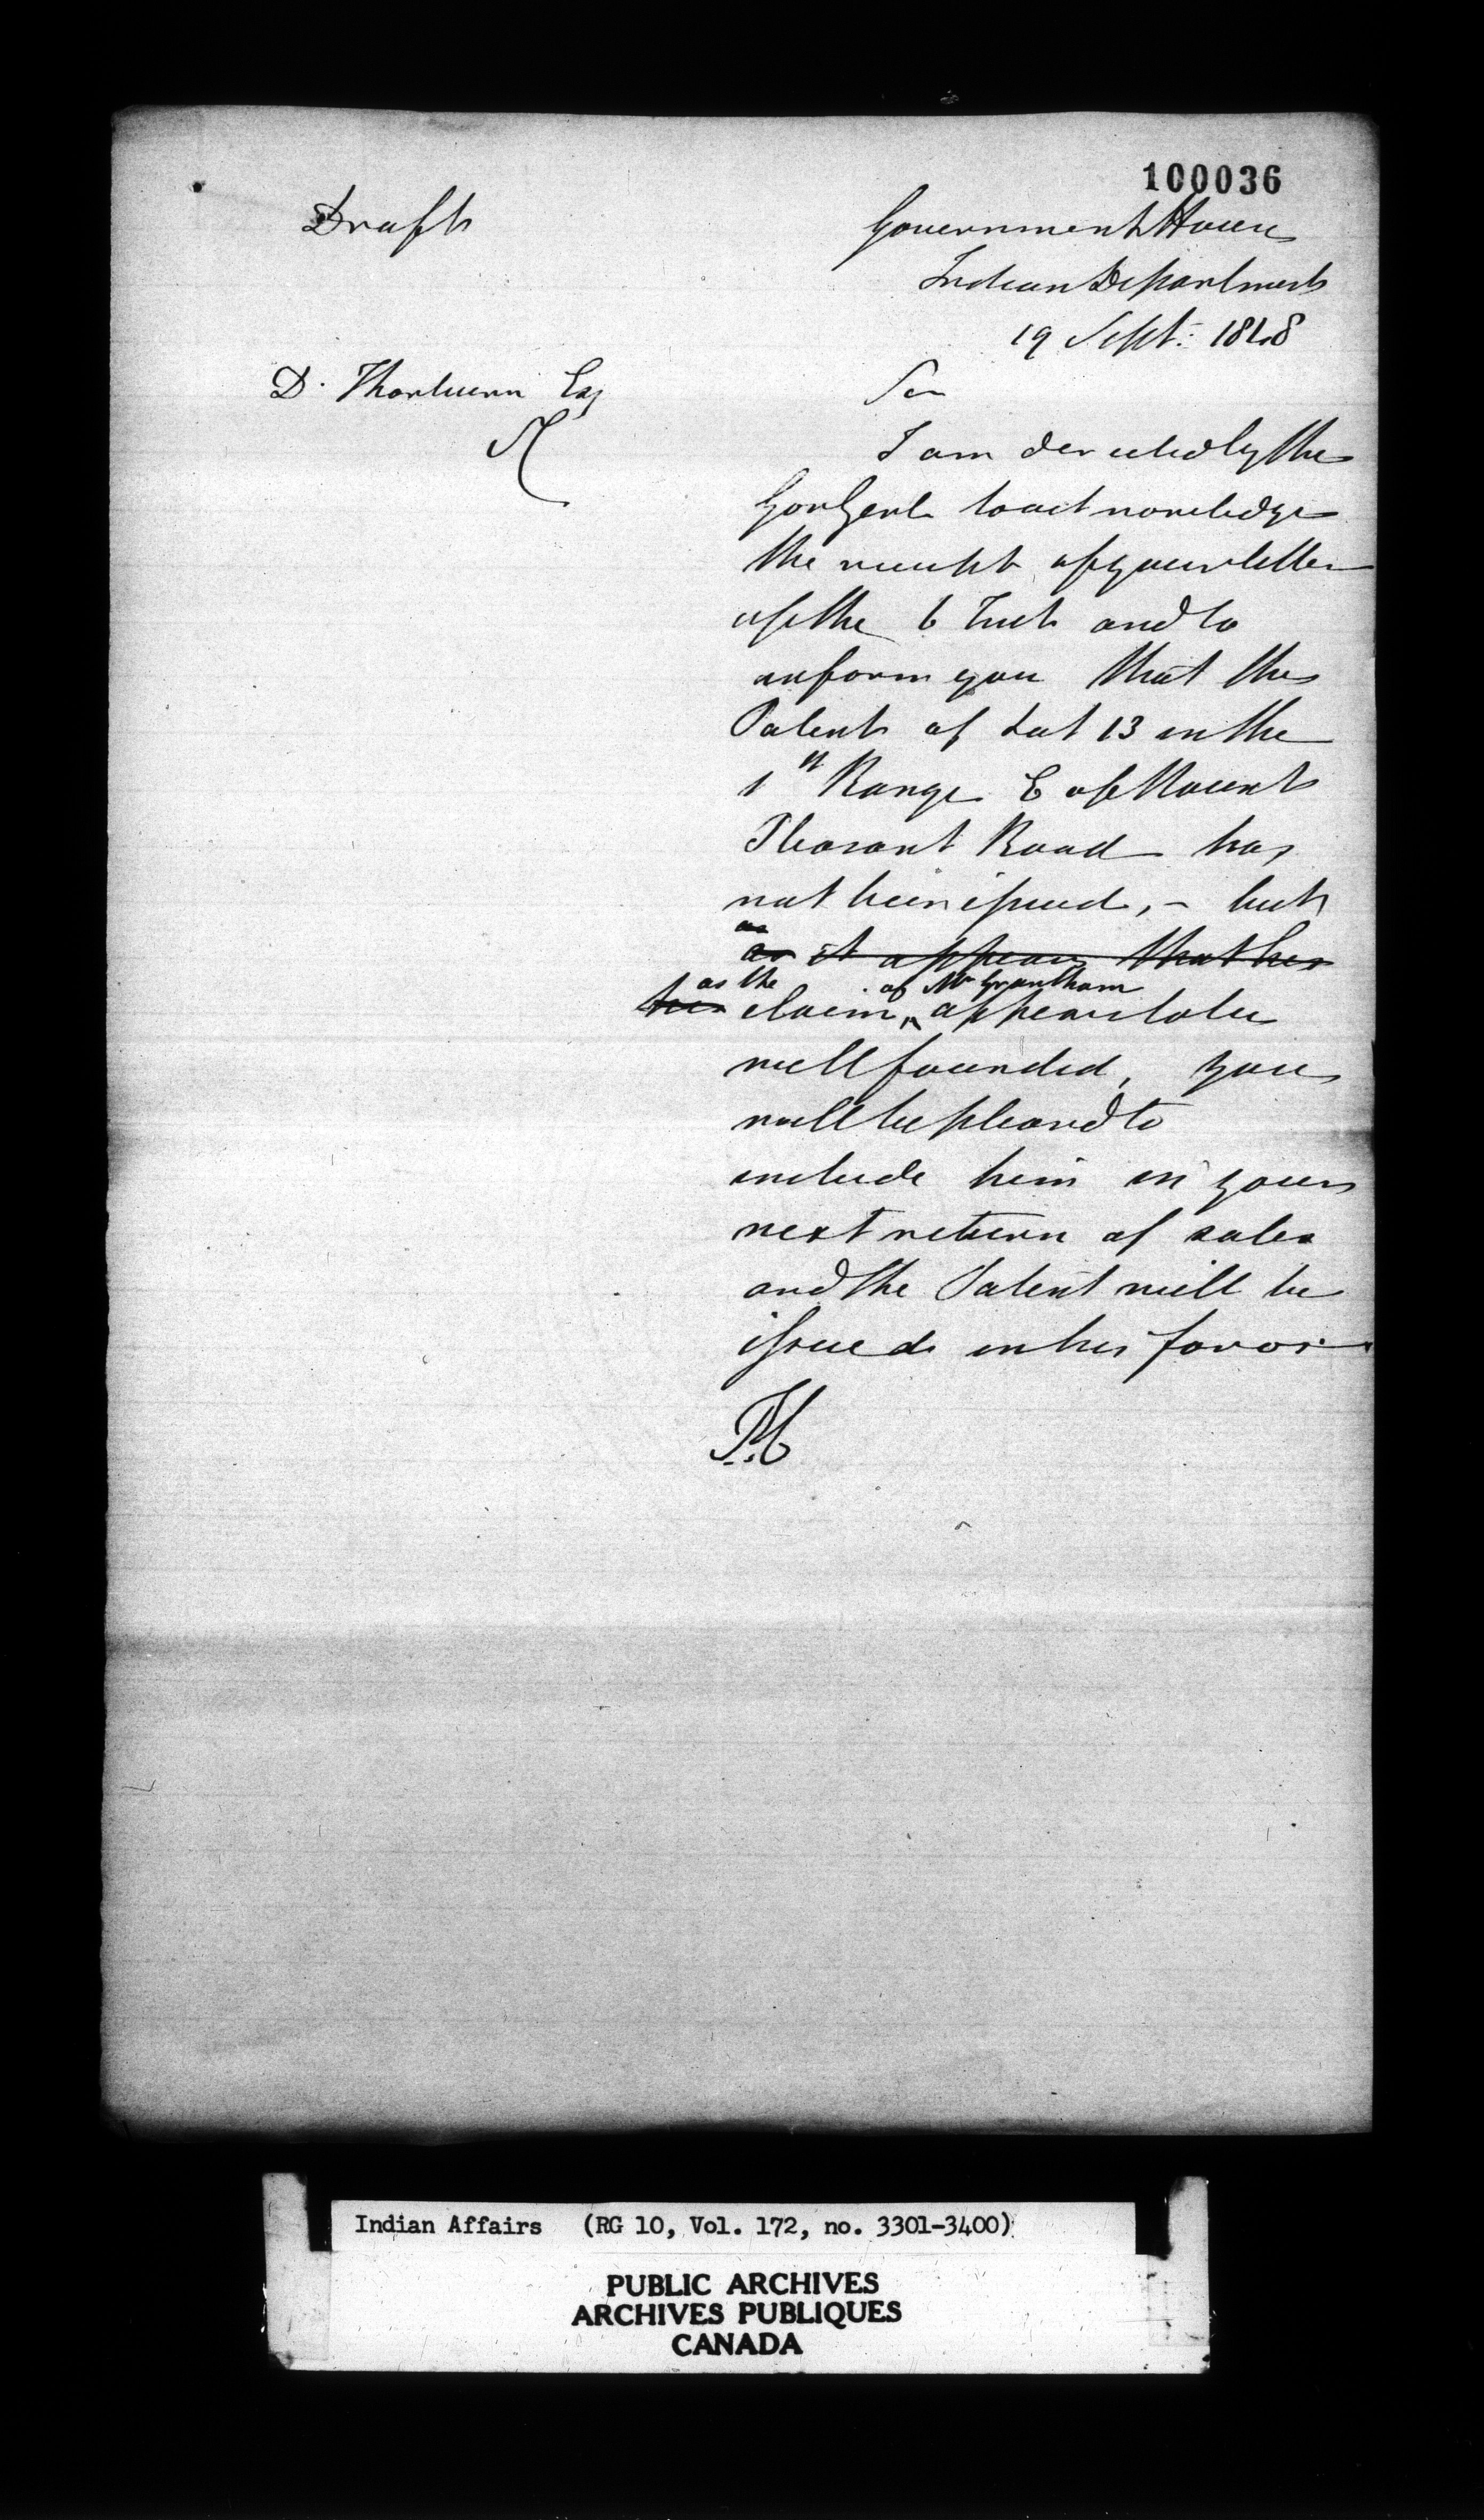 100036
Draft
Government House
Indian Department
19 Sept: 1848
D. Thorburn Esq
Sir
I am directed by the
Gov Genl to acknowledge
the receipt of your letter
of the 6 Inst and to
inform you that the
Patent of Lot 13 in the
1st Range E of Mount
Pleasant Road has
not been issued, - but
as
as it appears that his
as the of Mr Grantham
his claim ^ appears to be
well founded, you
will be pleased to
include him in your
next return of sales
and the Patent will be
issued in his favor
Indian Affairs (RG 10, Vol. 172, no. 3301-3400)
PUBLIC ARCHIVES
ARCHIVES PUBLIQUES
CANADA